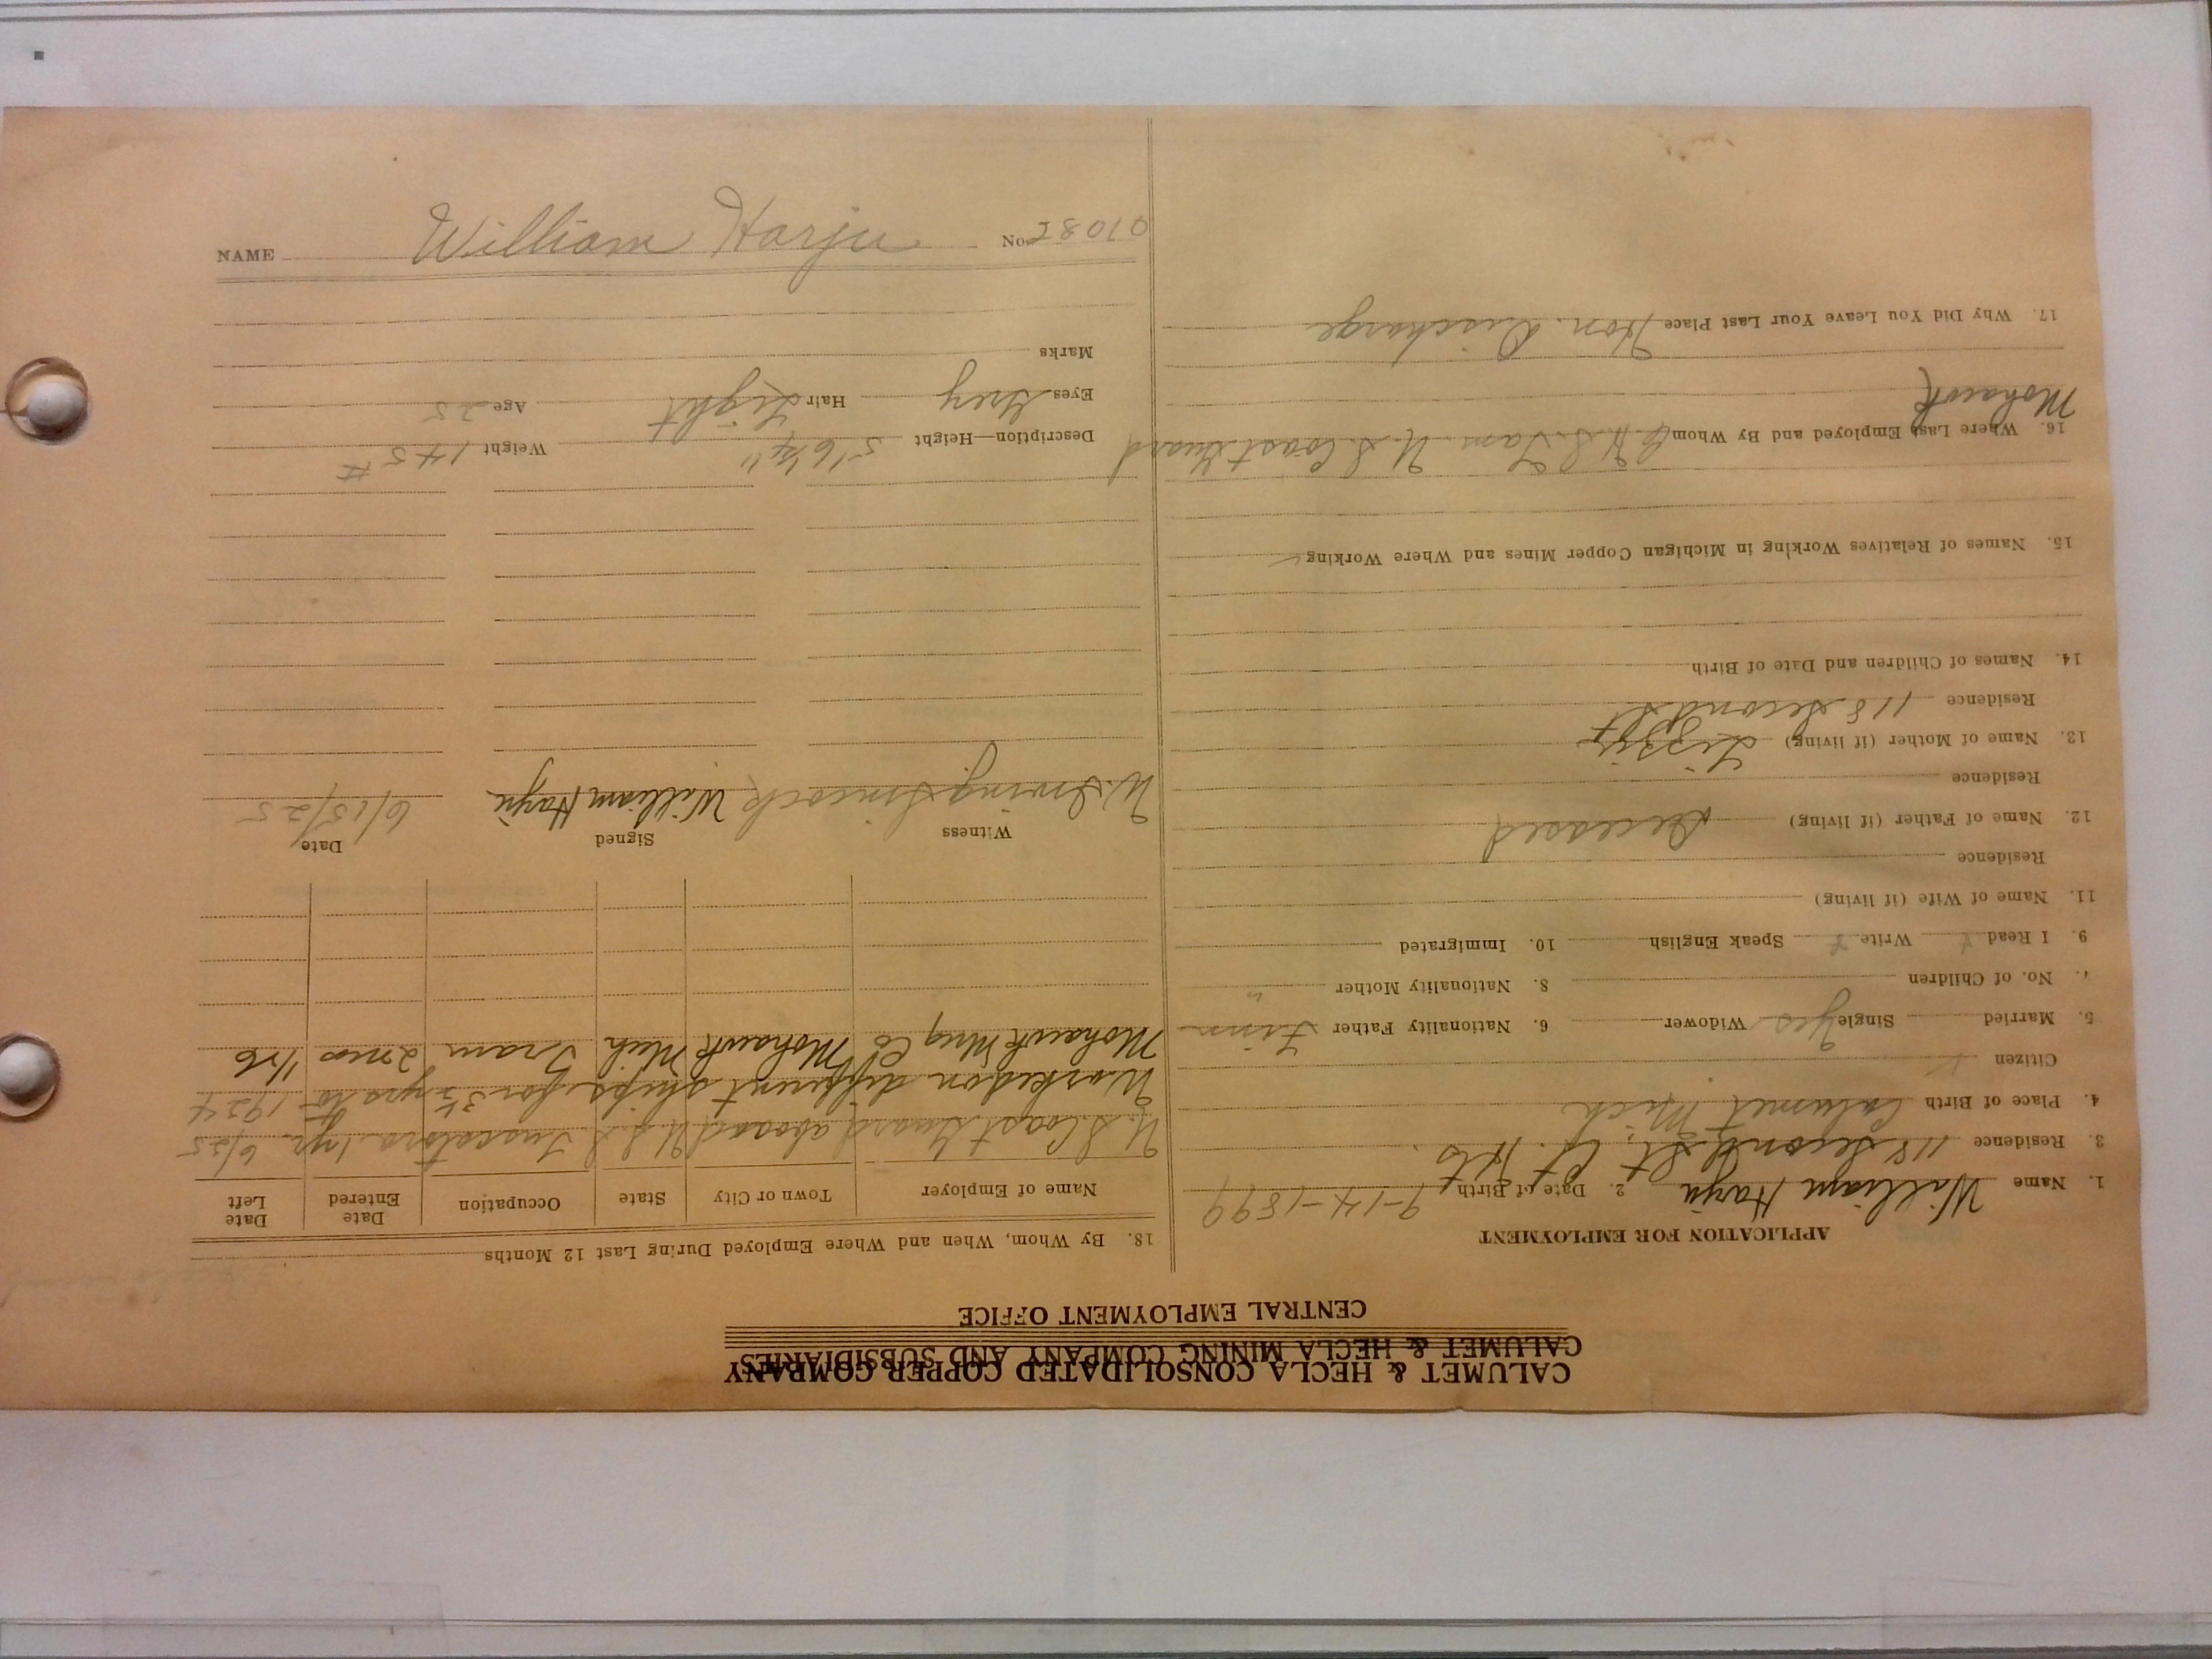 CALUMET & HECLA CONSOLIDATED COPPER COMPANY
CALUMET & HECLA MINING COMPANY AND SUBSIDIARIES
CENTRAL EMPLOYMENT OFFICE
APPLICATION FOR EMPLOYMENT
1. Name William Harju 2. Date of Birth 9-14-1899
3. Residence 118 Second St,
4. Place of Birth Calumet Mich
Citizen
5. Married Single Yes Widower 6. Nationality Father Finn
7. No. of Children 8. Nationality Mother "
9. I Read Write Speak English 10. Immigrated
11. Name of Wife (if living)
Residence
12. Name of Father (if living) Deceased
Residence
13. Name of Mother (if living) Lizzie
Residence 118 Second St
14. Names of Children and Date of Birth
15. Names of Relatives Working in Michigan Copper Mines and Where Working
16. Where Last Employed and By Whom U.S. Coast Guard
Mohawk
17. Why Did You Leave Your Last Place Hon. Discharge
18. By Whom, When and Where Employed During Last 12 Months
Name of Employer Town or City State Occupation Date Entered Date Left
U.S. Coast Guard aboard U.S.S. Tuscarora 1 yr. 6/25
Worked on different ships for 3½ yrs to 1924
Mohawk Mng Co Mohawk Mich Tram 2 mos 1/26
Witness Signed Date
W. Irving Sincock William Harju 6/15/25
Description—Height 5' 6 3/4" Weight 145 #
Eyes Grey Hair Light Age 25
Marks
NAME William Harju No.